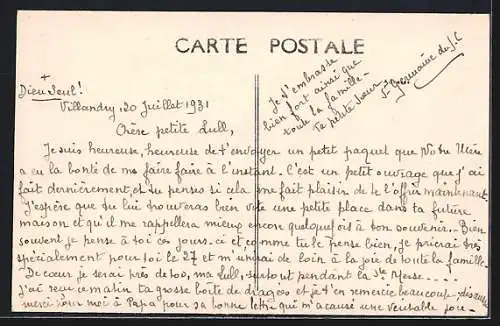 CARTE POSTALE
+
Dieu seul!
Villandry, 20 Juillet 1931
Chère petite Lull,
Je suis heureuse, heureuse de t'envoyer un petit paquet que Notre Mère
a eu la bonté de me faire faire à l'instant. C'est un petit ouvrage que j'ai
fait dernièrement, et tu penses si cela me fait plaisir de te l'offrir maintenant.
J'espère que tu lui trouveras bien vite une petite place dans ta future
maison et qu'il me rappellera mieux encore quelquefois à ton souvenir. Bien
souvent je pense à toi ces jours-ci et comme tu le penses bien, je prierai très
spécialement pour toi le 27 et m'unirai de loin à la joie de toute la famille.
De cœur je serai près de toi, ma Lull, surtout pendant la Ste Messe.
J'ai reçu ce matin ta grosse boîte de dragées et je t'en remercie beaucoup. disant
merci pour moi à Papa pour sa bonne lettre qui m'a causé une véritable joie.
Je t'embrasse
bien fort ainsi que
toute la famille.
Ta petite sœur
Sr Germaine du S.C